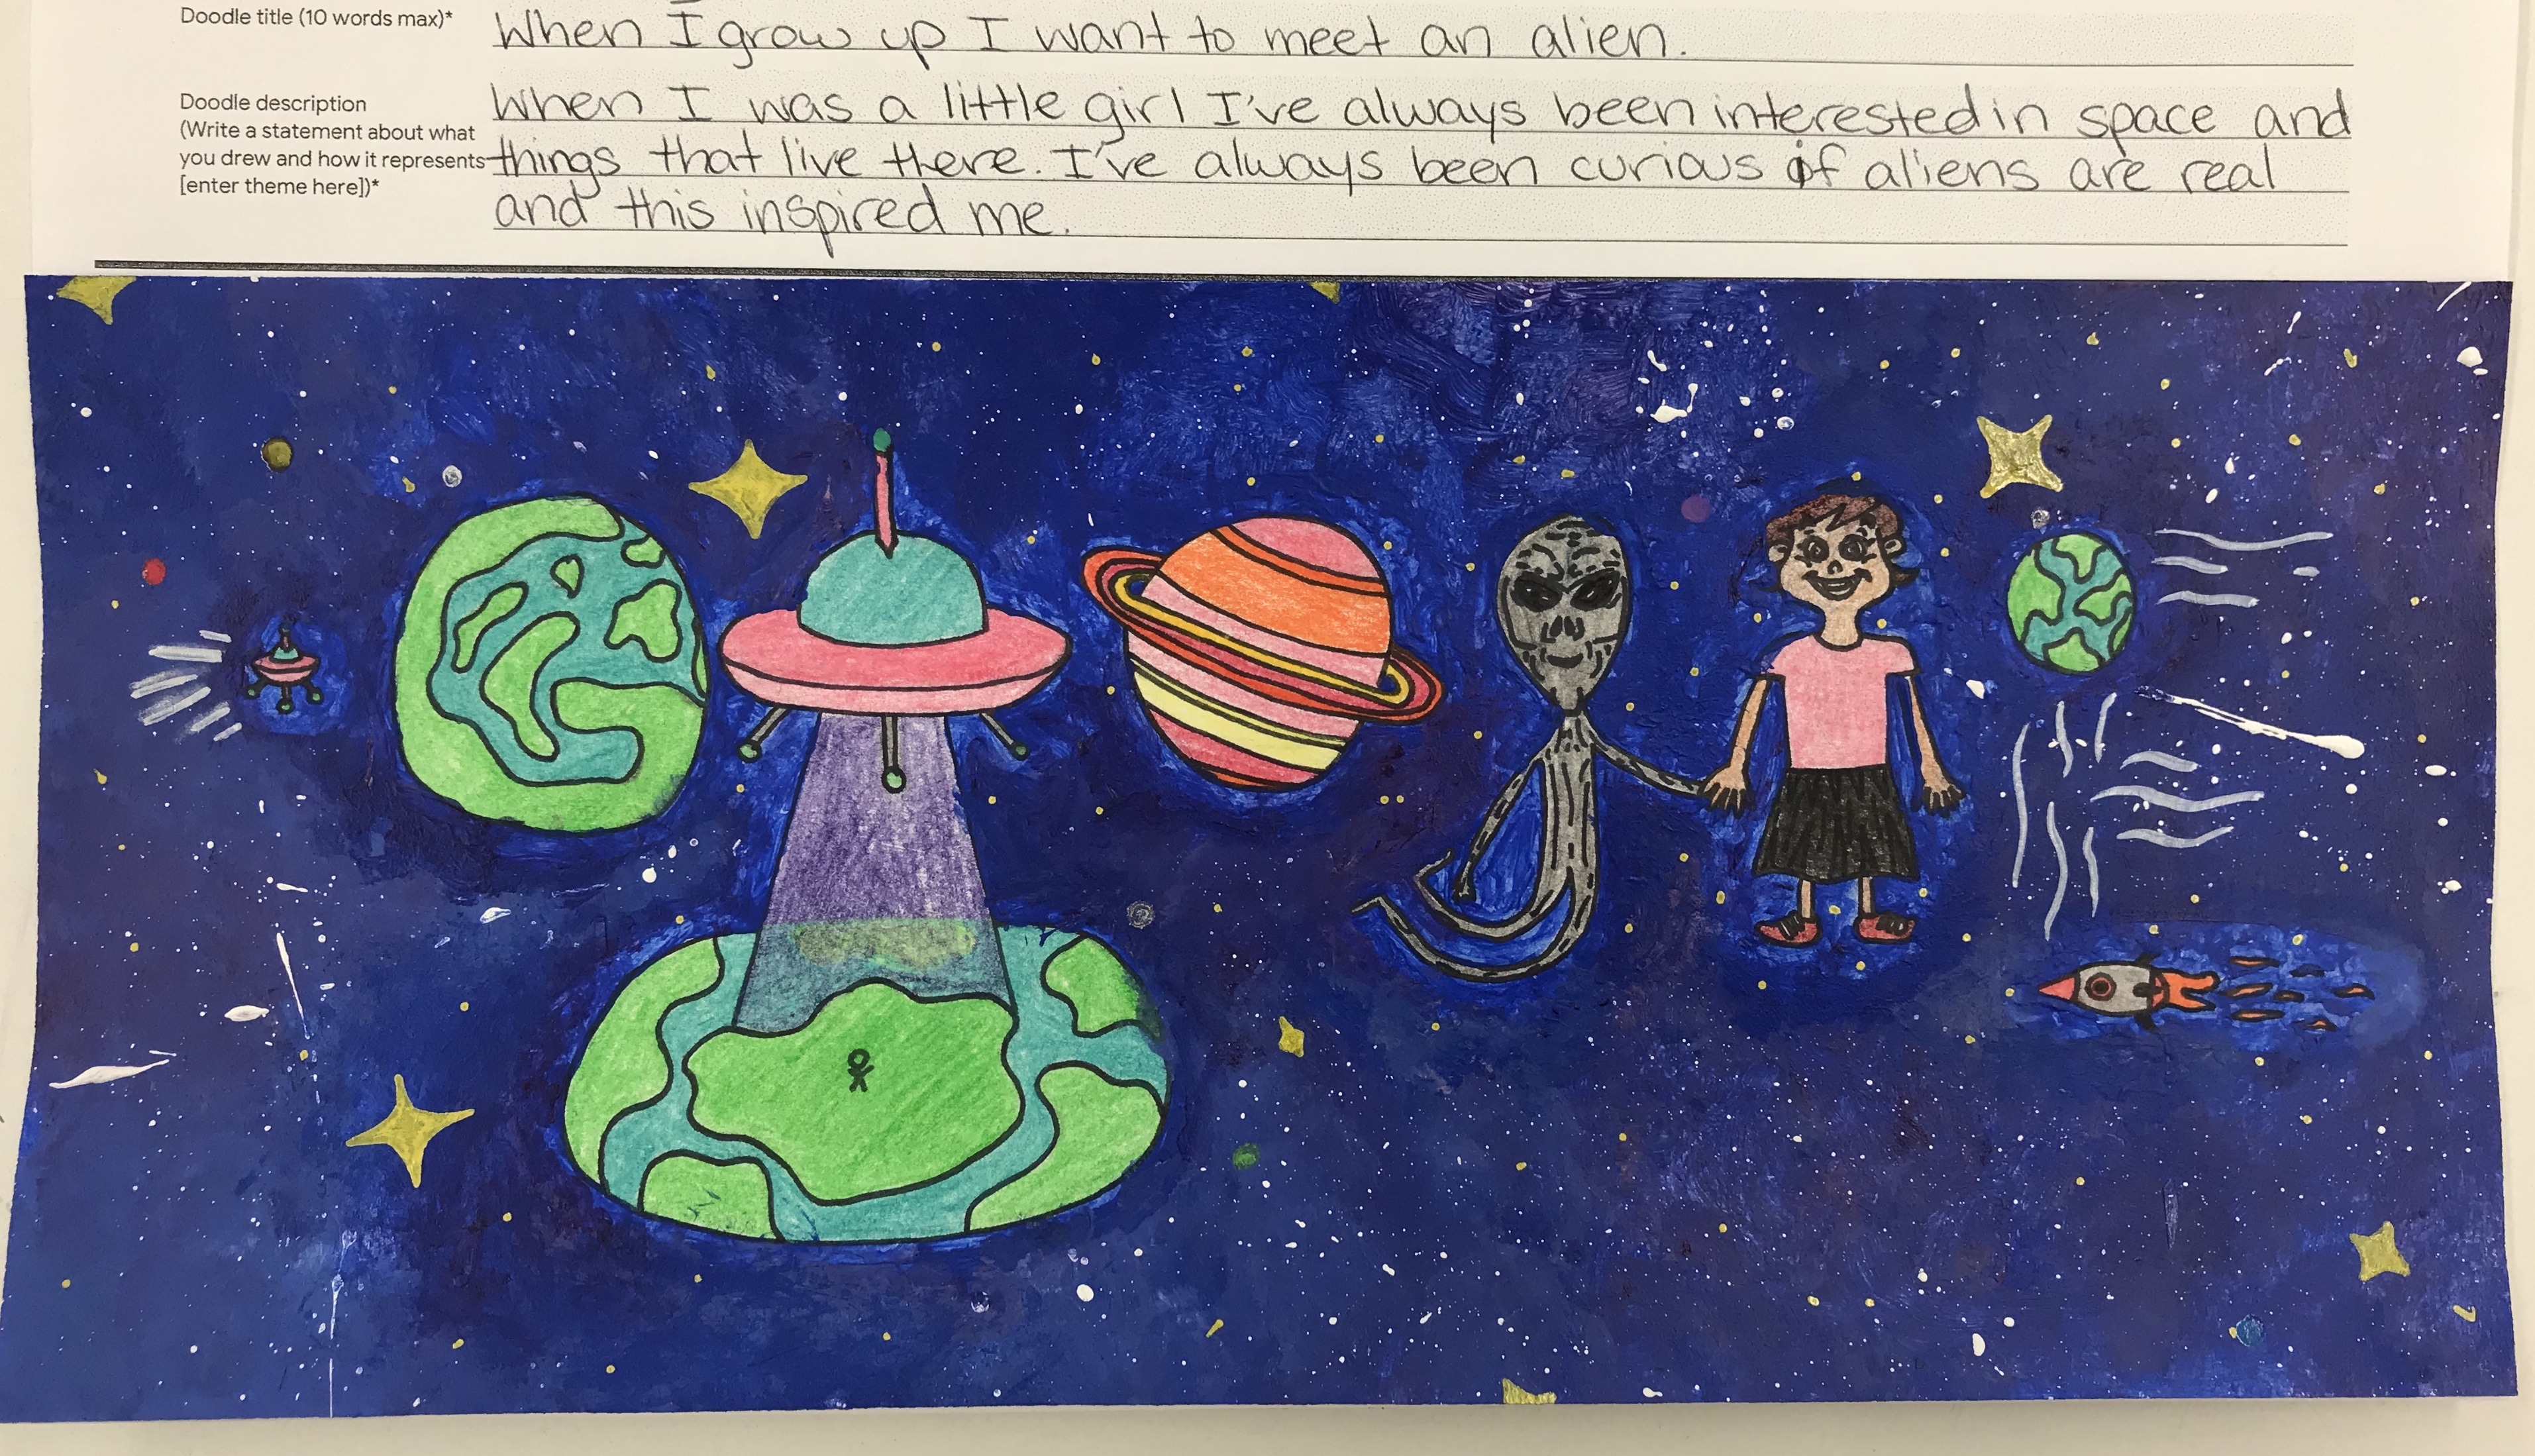 Doodle title (10 words max)* When I grow up I want to meet an alien.
Doodle description
(Write a statement about what
you drew and how it represents
[enter theme here])*
When I was a little girl I've always been interested in space and
things that live there. I've always been curious if aliens are real
and this inspired me.